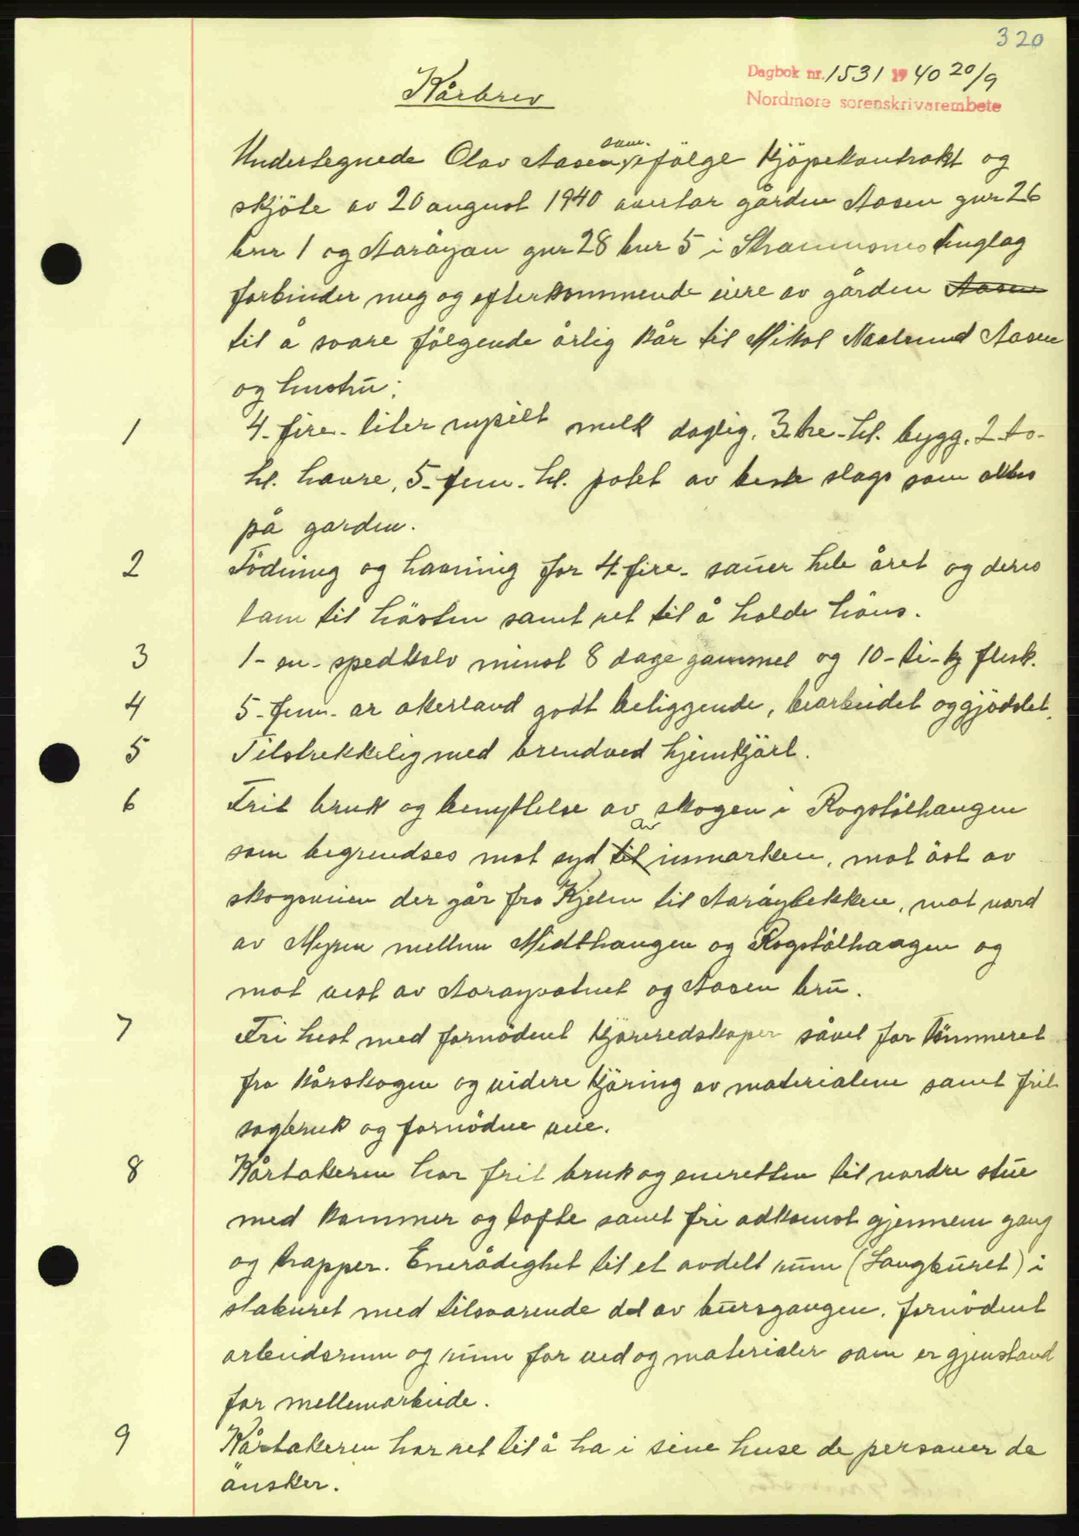 320
Dagbok nr. 1531 1940 20/9
Nordmøre sorenskrivarembete
Kårbrev
Undertegnede Olav Aasen, som ifölge kjöpekontrakt og
skjöte av 20 august 1940 overtar gården Aasen gnr 26
bnr 1 og Aaröyan gnr 28 bnr 5 i Straumsnes tinglag
forbinder meg og efterkommende eiere av gården Aasen
til å svare fölgende årlig kår til Mikal Aasen
og hustru:
1 4-fire-liter nysilt melk daglig, 3-tre-hl. bygg, 2-to-
hl. havre, 5-fem-hl. potet av beste slags som avles
på garden.
2 Födning og havning for 4-fire-sauer hele året og deres
lam til hösten samt ret til å holde höns.
3 1-en-spedkalv minst 8 dage gammel og 10-ti-kg flesk.
4 5-fem-ar akerland godt beliggende, bearbeidet og gjödslet.
5 Tilstrekkelig med brendved hjemkjört.
6 Frit bruk og benyttelse av skogen i Rogstölhaugen
som begrendses mot syd til av inmarken, mot öst av
skogsveien der går fra Kjelen til Aaröybekken, mot nord
av Myren mellem Midthaugen og Rogstölhaugen og
mot vest av Aaröyvatnet og Aasen bru.
7 Fri hest med fornödent kjöreredskaper såvel for tömmeret
fra kårskogen og videre kjöring av materialene samt frit
sagbruk og fornödne veie.
8 Kårtakeren har frit bruk og eneretten til nordre stue
med kammer og lofte samt fri adkomst gjennem gang
og trapper. Enerådighet til et avdelt rum (Langburet) i
staburet med tilsvarende del av bursgangen, fornödent
arbeidsrum og rum for ved og materialer som er gjenstand
for mellemarbeide.
9 Kårtakeren har ret til å ha i sine huse de personer de
önsker.